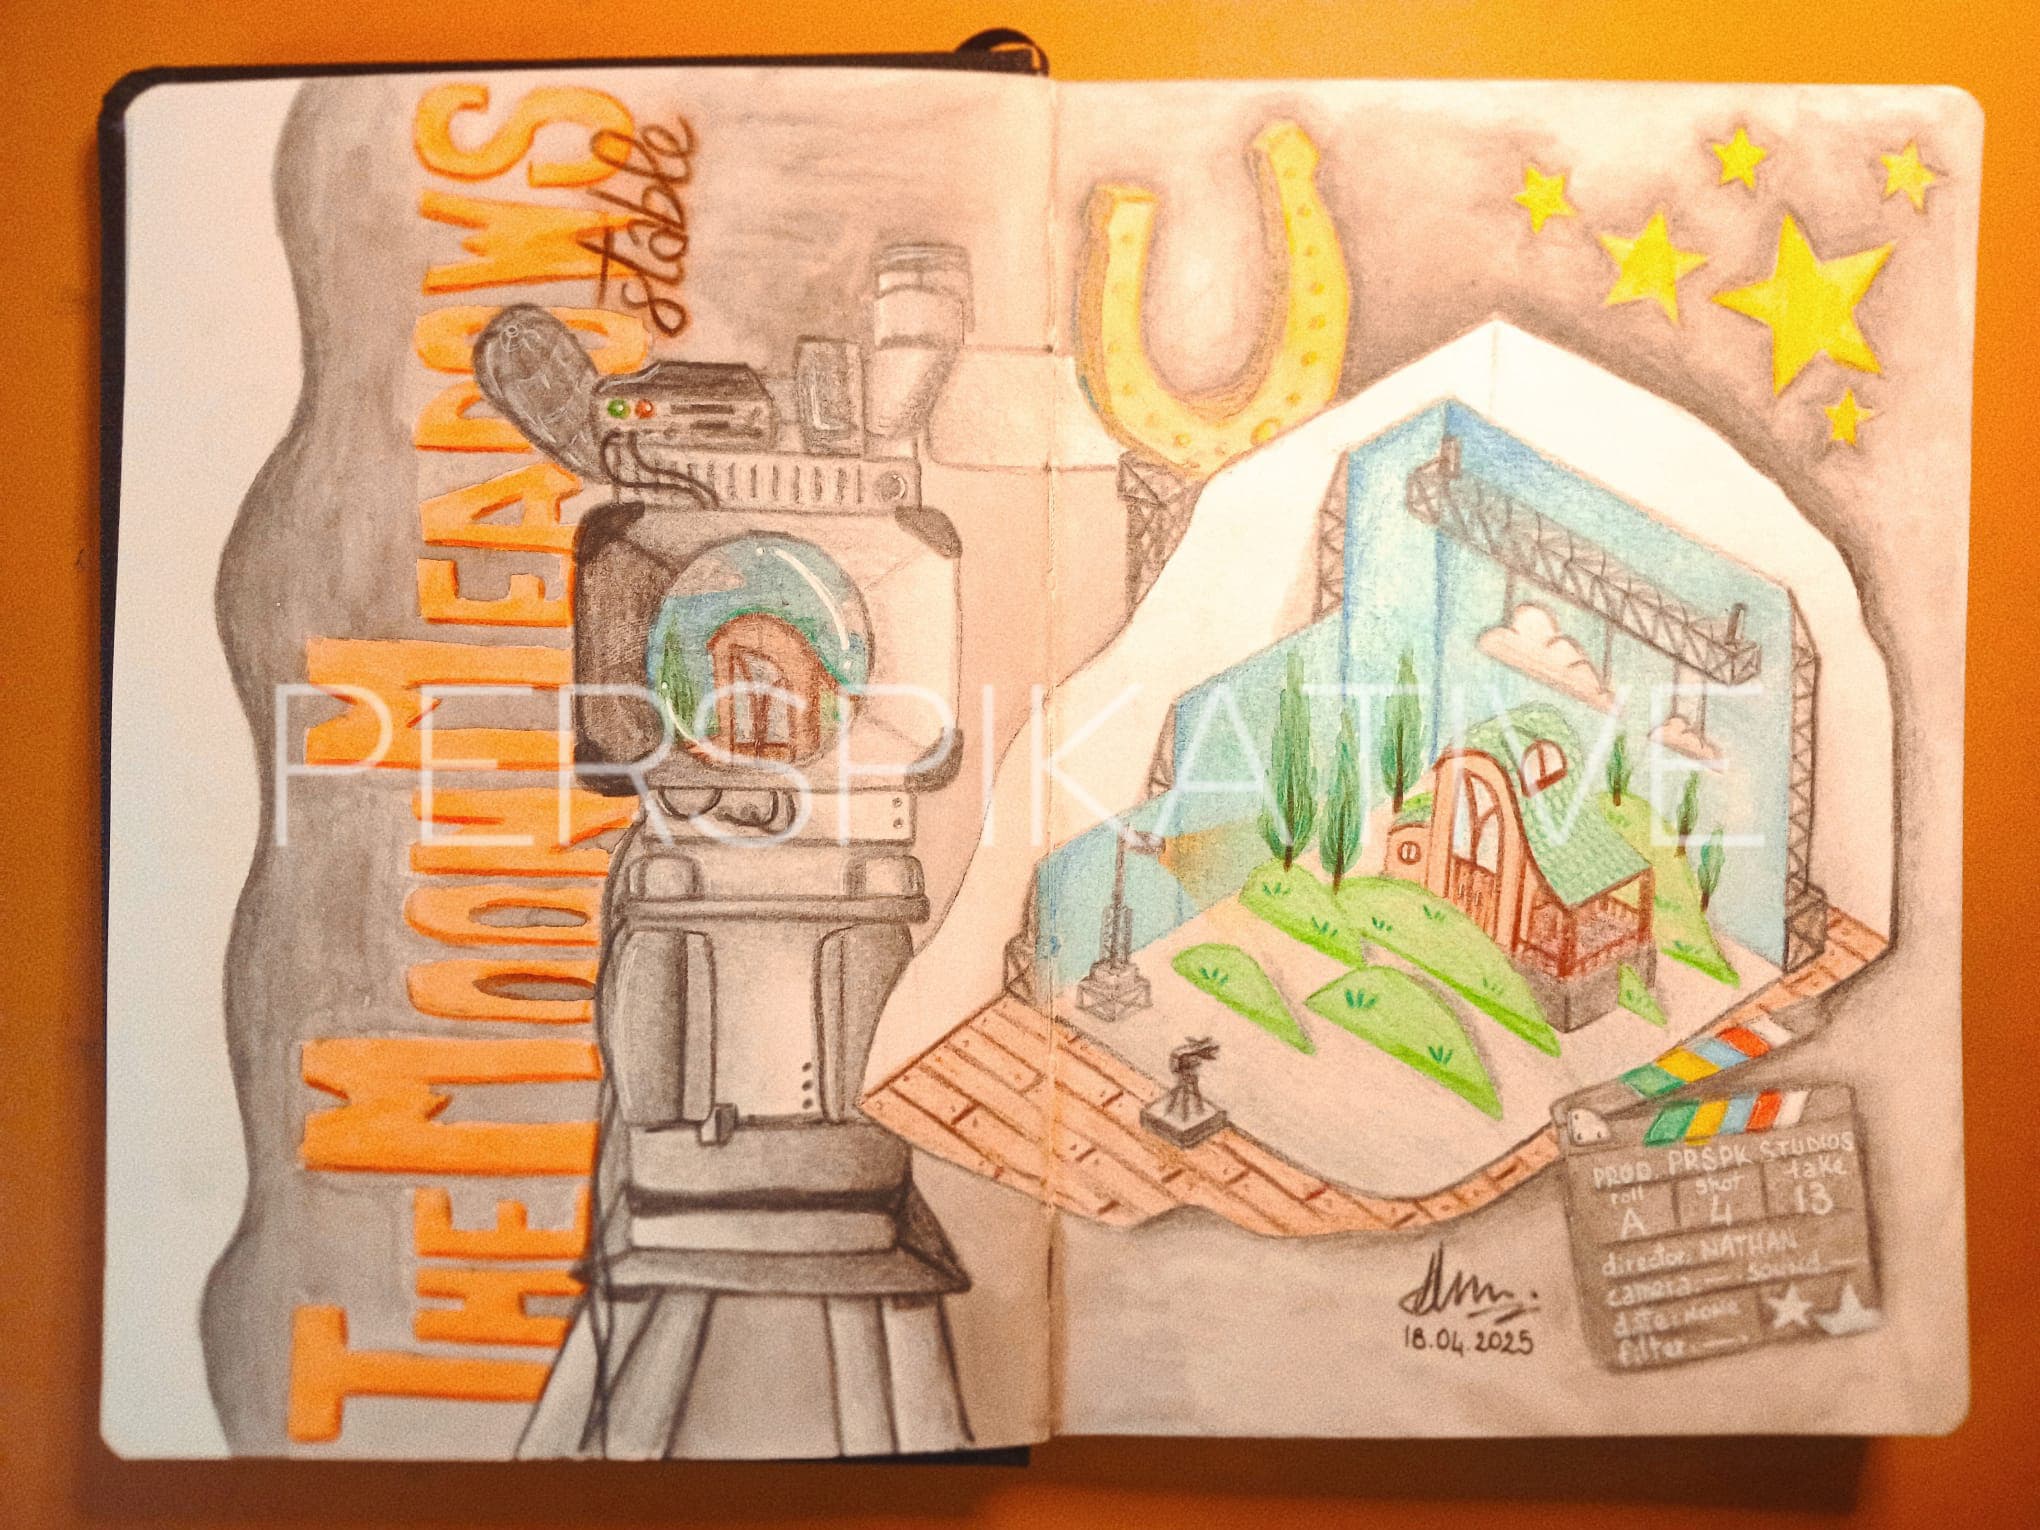 THE MOON MEADOWS
stable
PERSPIKATIVE
PROD. PRSPK STUDIOS
roll shot take
A 4 13
director: NATHAN
camera: sound
filter:
18.04.2025